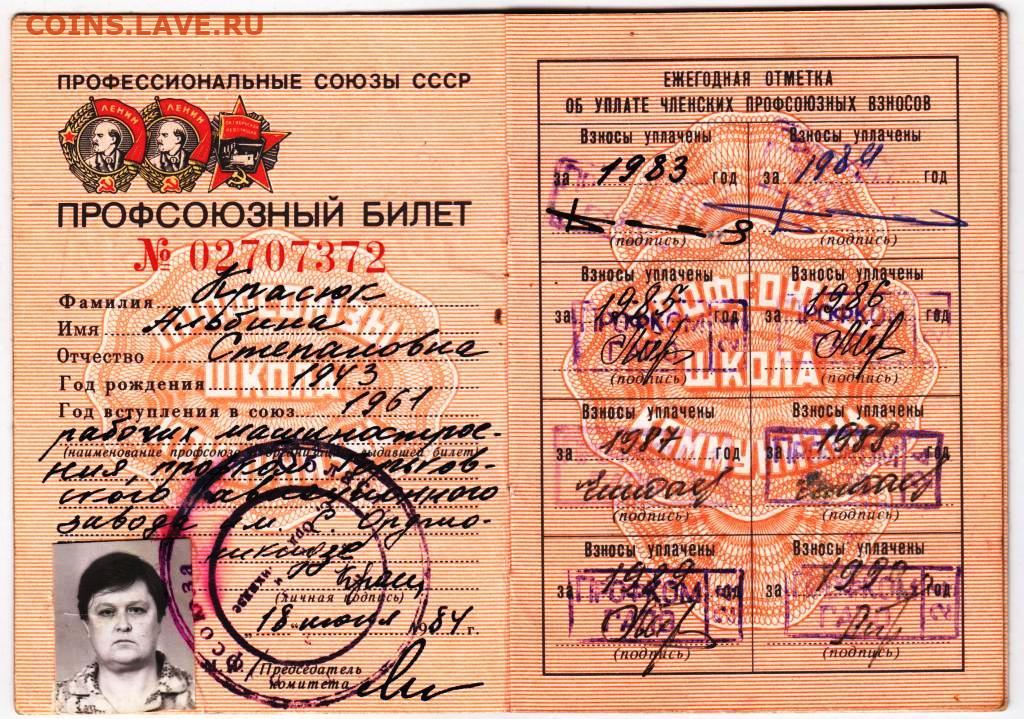 COINS.LAVE.RU
ПРОФЕССИОНАЛЬНЫЕ СОЮЗЫ СССР
ЛЕНИН ЛЕНИН ОКТЯБРЬСКАЯ РЕВОЛЮЦИЯ
ПРОФСОЮЗНЫЙ БИЛЕТ
№ 02707372
Фамилия Красюк
Имя Альбина
Отчество Степановна
Год рождения 1943
Год вступления в союз 1961
рабочих машинострое-
(наименование профсоюза и организации, выдавшей билет)
ния профком Горьков-
ского авиационного
завода им. Орджо-
никидзе
(личная подпись)
"18" июня 1984 г.
Председатель
комитета
ПРОФСОЮЗЫ
ШКОЛА
ЕЖЕГОДНАЯ ОТМЕТКА
ОБ УПЛАТЕ ЧЛЕНСКИХ ПРОФСОЮЗНЫХ ВЗНОСОВ
Взносы уплачены Взносы уплачены
за 1983 год за 1984 год
(подпись) (подпись)
Взносы уплачены Взносы уплачены
за 1985 год за 1986 год
ПРОФКОМ ПРОФКОМ
(подпись) (подпись)
Взносы уплачены Взносы уплачены
за 1987 год за 1988 год
(подпись) (подпись)
Взносы уплачены Взносы уплачены
за 1989 год за год
ПРОФКОМ ПРОФКОМ
(подпись) (подпись)
ПРОФСОЮЗЫ
ШКОЛА
КОММУНИЗМА